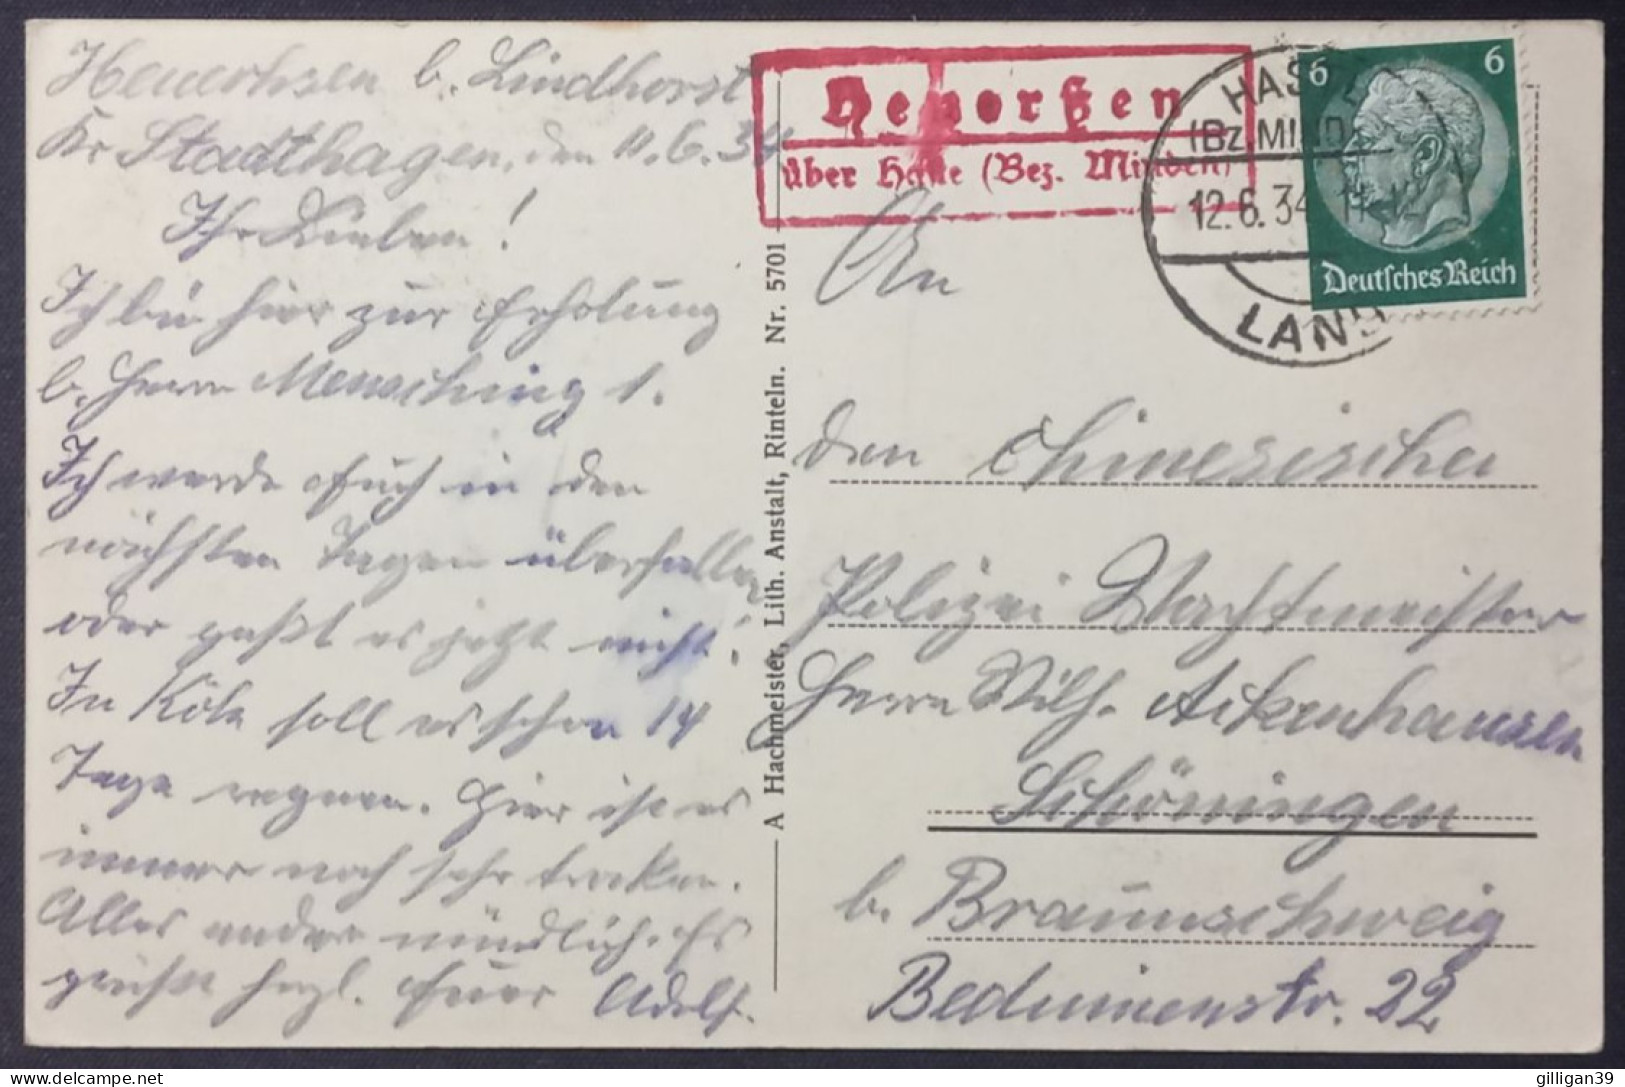 Heuerßen b. Lindhorst
Kr Stadthagen, den 11.6.34
Ihr Lieben!
Ich bin hier zur Erholung
b. Herrn Mensching 1.
Ich werde Euch in den
nächsten Tagen überfallen
oder paßt es jetzt nicht?
In Köln soll es schon 14
Tage regnen. Hier ist es
immer noch sehr trocken.
Alles andere mündlich. Es
grüßt herzl. Euer Adolf.
A Hachmeister, Lith. Anstalt, Rinteln. Nr. 5701
Heuerßen
über Haste (Bez. Minden)
HASTE
(Bz. MIND
12.6.34 11-12
LAND
6 6
Deutsches Reich
An
den Chinesischen
Polizei Wachtmeister
Herrn Wilh. Ackenhausen
Schöningen
b. Braunschweig
22
gilligan39